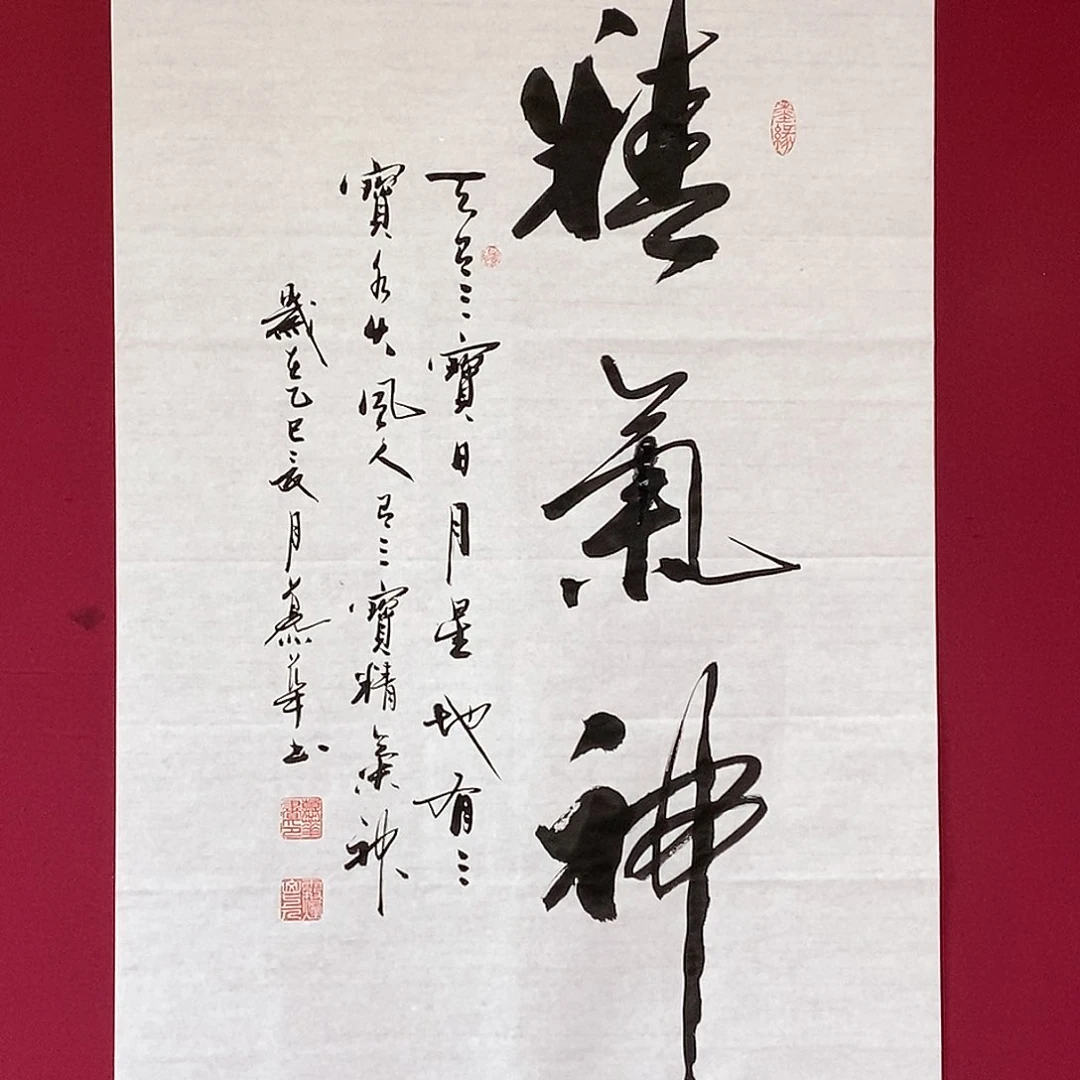 精
氣
神
天有三寶日月星地有三
寶水火風人有三寶精氣神
歲在乙巳辰月慕華书
墨緣